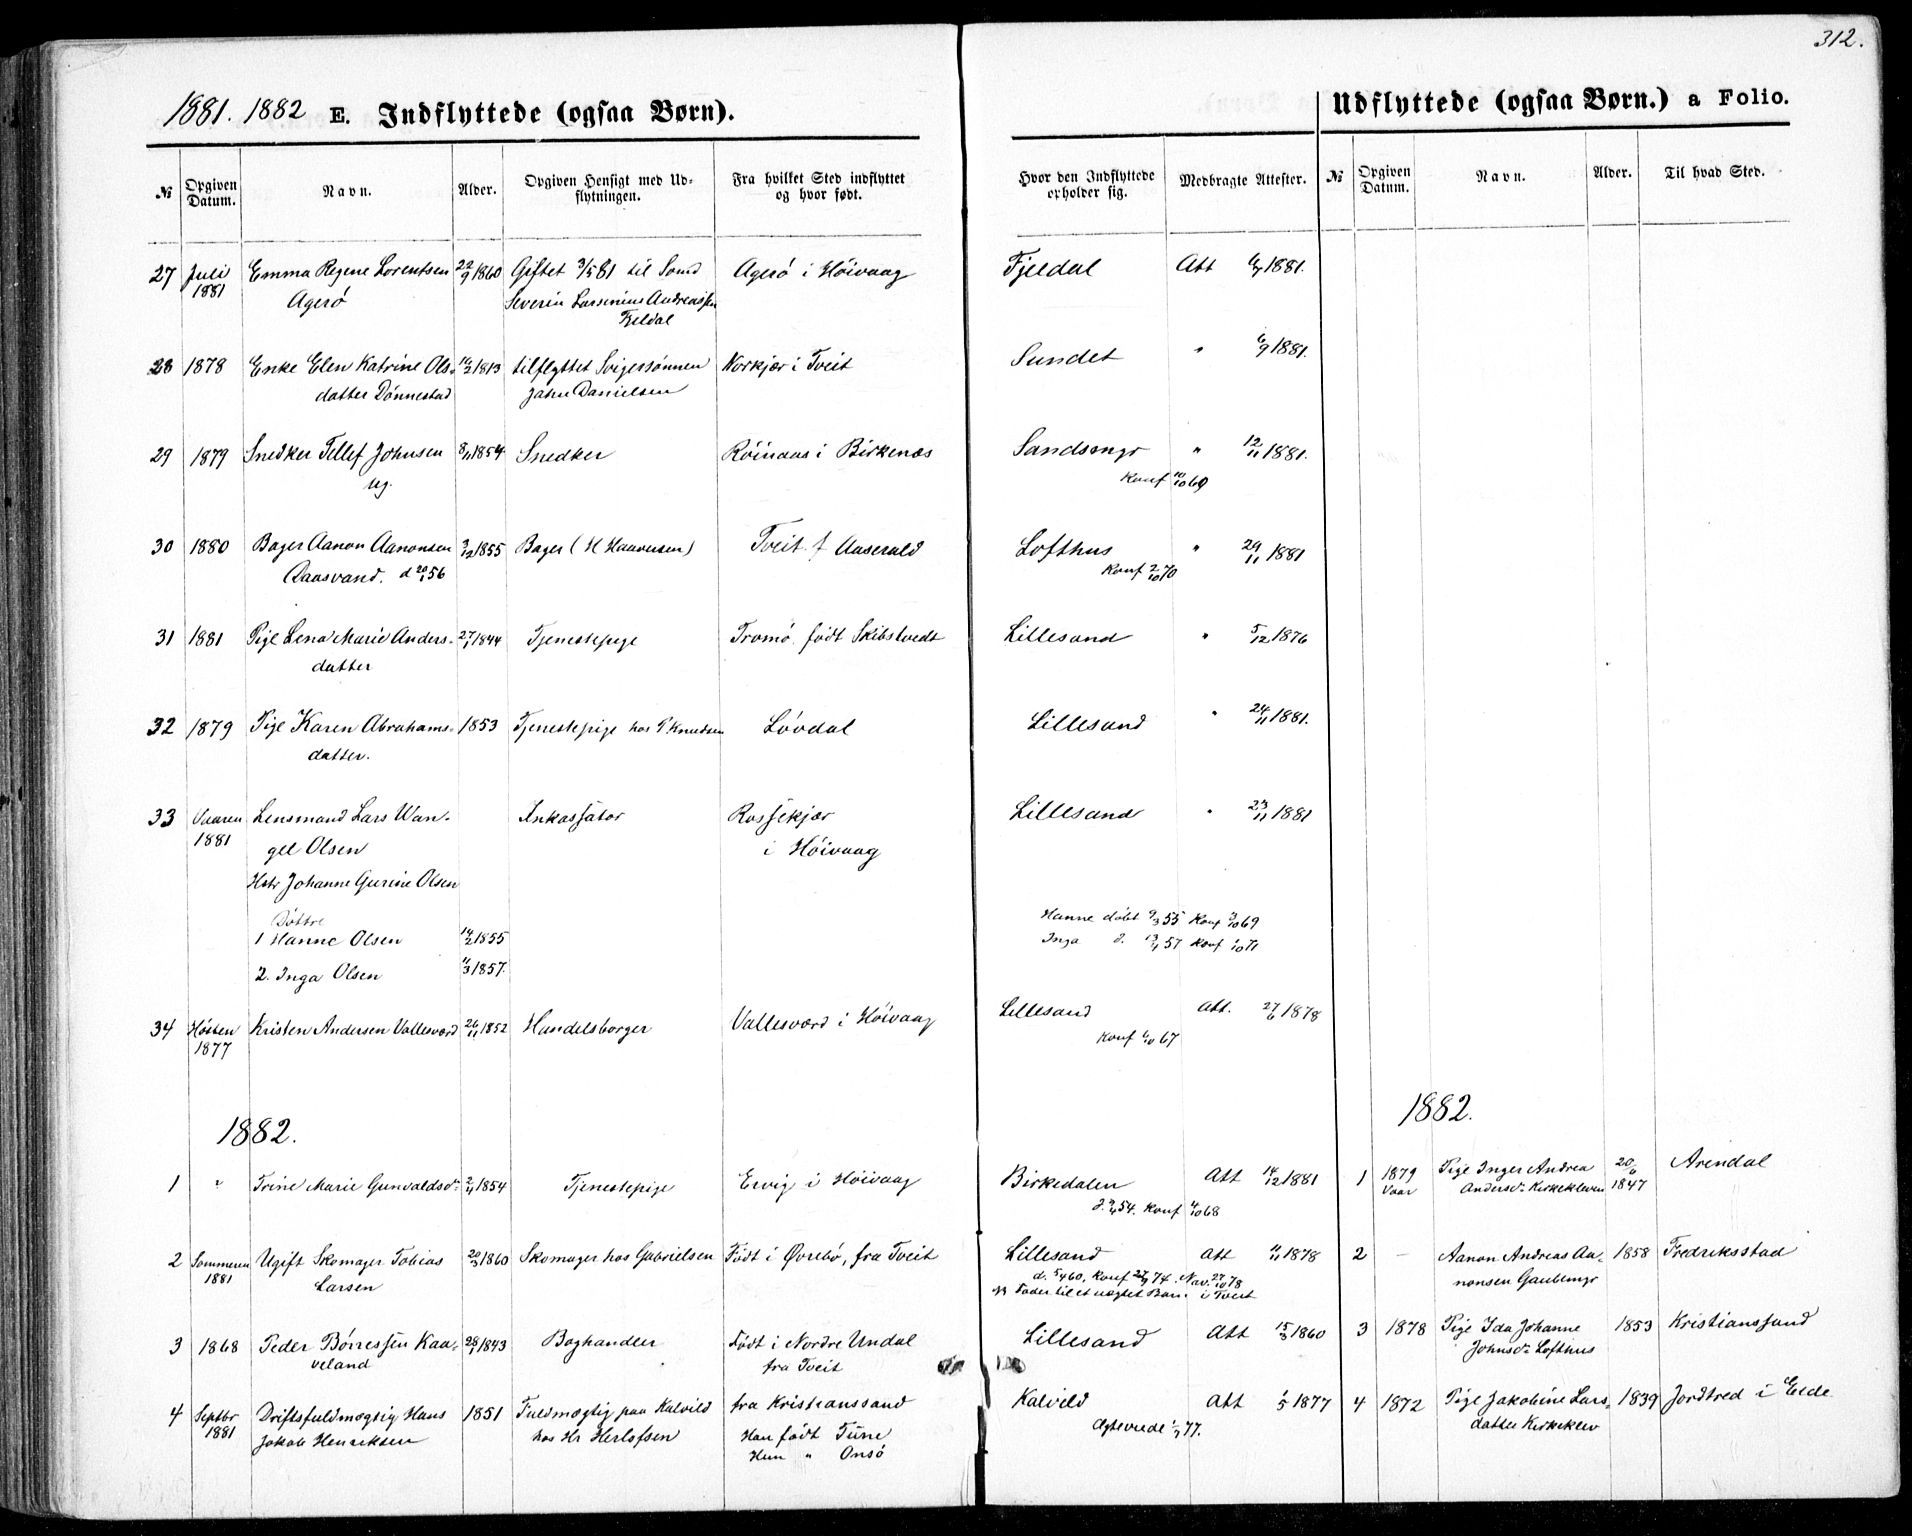 312.
1881. 1882 E. Indflyttede (ogsaa Børn).
Udflyttede (ogsaa Børn.) a Folio.
№ Opgiven Datum. Navn. Alder. Opgiven Hensigt med Udflytningen. Fra hvilket Sted indflyttet og hvor født. Hvor den Indflyttede opholder sig. Medbragte Attester. № Opgiven Datum. Navn. Alder. Til hvad Sted.
27 Juli Emma Regine Lorentsen 22/9 1860 Giftet 3/5 81 til Agerø i Höivaag Fjeldal Att 1881.
1881 Agerø Severin Larsenius Andreassen
Fjeldal
28 1878 Enke Elen Katrine Ols- 1813 tilflyttet Svigersønnen Norkjær i Tveit Sundet " 6/9 1881.
datter Dönnestad Jahn Danielsen
29 1879 Snedker Tellef Johnsen 8/11 1854 Snedker Röinaas i Birkenæs Sandsmyr " 12/11 1881.
ug. Konf 10/10 69
30 1880 Bager Aanon Aanonsen 3/12 1855 Bager (H Haavesen) Tveit. f Aaserald Lofthus " 29/11 1881
Aaasvand. d 20/1 56 Konf 2/10 70
31 1881 Pige Lena Marie Anders- 27/1 1844 Tjenestepige Tromö. födt Skibstvedt Lillesand " 5/12 1876
datter
32 1879 Pige Karen Abrahams- 1853 Tjenestepige hos P. Knudsen Lövdal Lillesand " 24/11 1881.
datter.
33 Vaaren Lensmand Lars Wan- Inkassator Rossekjær Lillesand " 23/11 1881
1881 gel Olsen i Höivaag
Hstr Johanne Gurine Olsen
Döttre
1 Hanne Olsen 14/2 1855 Hanne döbt 9/3 55 Konf 3/10 69
2. Inga Olsen 1857. Inga d. 57 Konf 1/10 71
34 Hösten Kristen Andersen Vallesværd 26/11 1852 Handelsborger Vallesværd i Höivaag Lillesand Att. 27/6 1878
1877 Konf 6/10 67
1882.
1882.
1 " Trine Marie Gunvaldsdr 2/11 1854 Tjenestepige Ervig i Höivaag Birkedalen Att 14/12 1881
54. Konf 4/10 68
1 1879 Pige Inger Andrea 20/6 Arendal
Vaar Andersdr Kirkekleven 1847
2 Sommeren Ugift Skomager Tobias 20/3 1860 Skomager hos Gabrielsen Födt i Øvrebö, fra Tveit Lillesand Att 1878
1881 Larsen d. 5/4 60, Konf 74. Nav. 27/10 78
NB Fader til et uægtet Barn i Tveit
2 — Aanon Andreas Aa- 1858 Fredriksstad
nonsen Gaubemyr
3 1868 Peder Börressen Kaa- 28/1 1843 Boghandler Födt i Nordre Undal Lillesand Att 15/3 1860
veland fra Tveit
3 1878 Pige Ida Johanne 1853 Kristianssand
Johnsdr Lofthus
4 Septbr Driftsfuldmægtig Hans 1851 Fuldmægtig paa Kalvild fra Kristianssand Kalvild Att 1/5 1877
1881 Jakob Henriksen hos Hr Herlofsen Han födt Tune Ægteviede 77.
Hun " Onsö
4 1872 Pige Jakobine Lars- 1839 Jordtred i Eide
datter Kirkeklev